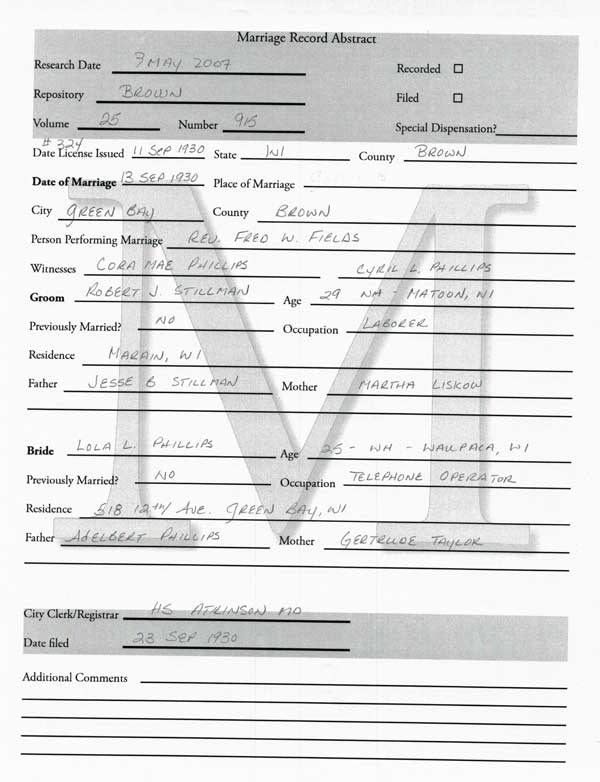 Marriage Record Abstract
Research Date 7 MAY 2007 Recorded ☐
Repository BROWN Filed ☐
Volume 25 Number 915 Special Dispensation?
# 324
Date License Issued 11 SEP 1930 State WI County BROWN
Date of Marriage 13 SEP 1930 Place of Marriage
City GREEN BAY County BROWN
Person Performing Marriage REV. FRED W. FIELDS
Witnesses CORA MAE PHILLIPS CYRIL L. PHILLIPS
Groom ROBERT J. STILLMAN Age 29 WH - MATOON, WI
Previously Married? NO Occupation LABORER
Residence MARAIN, WI
Father JESSE B STILLMAN Mother MARTHA LISKOW
Bride LOLA L. PHILLIPS Age 25 - WH - WAUPACA, WI
Previously Married? NO Occupation TELEPHONE OPERATOR
Residence 518 12TH AVE. GREEN BAY, WI
Father ADELBERT PHILLIPS Mother GERTRUDE TAYLOR
City Clerk/Registrar HS ATKINSON MD
Date filed 23 SEP 1930
Additional Comments
M